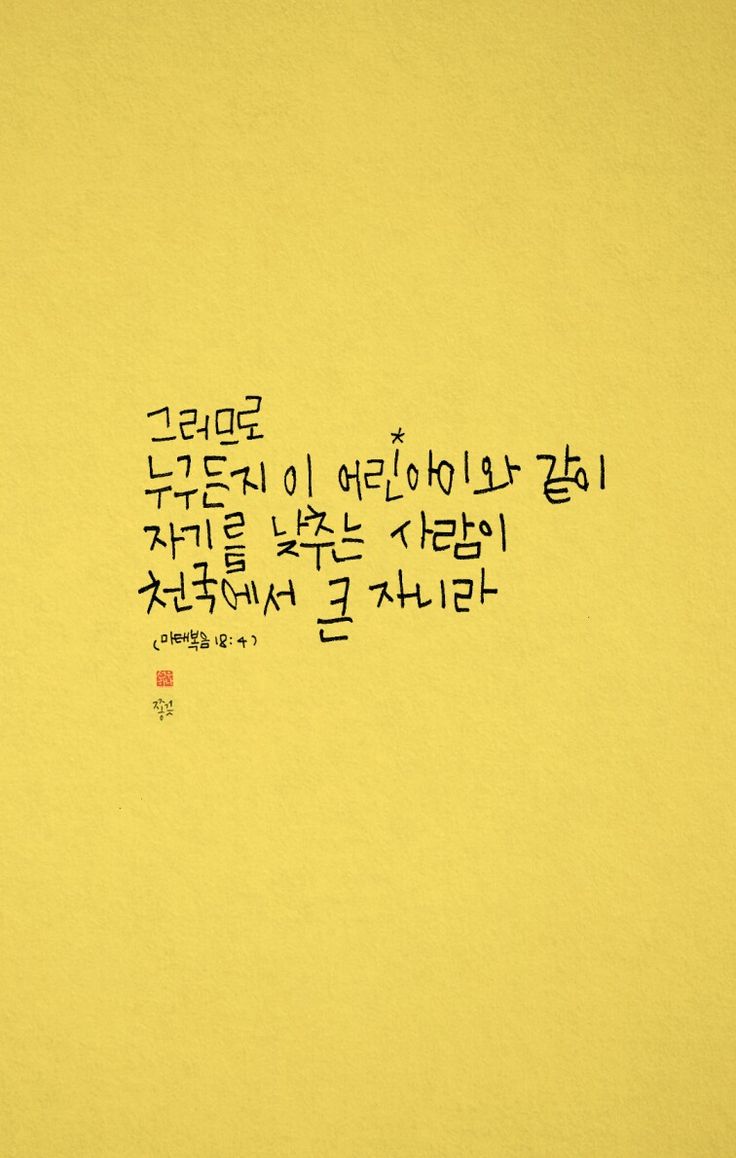 그러므로
누구든지 이 어린*아이와 같이
자기를 낮추는 사람이
천국에서 큰 자니라
(마태복음 18:4)